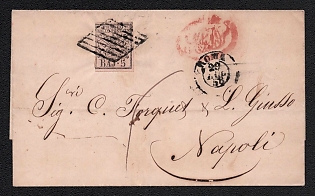 BAJ 5
ROMA
20
Sig.ri C. Forquet & L. Giusso
Napoli